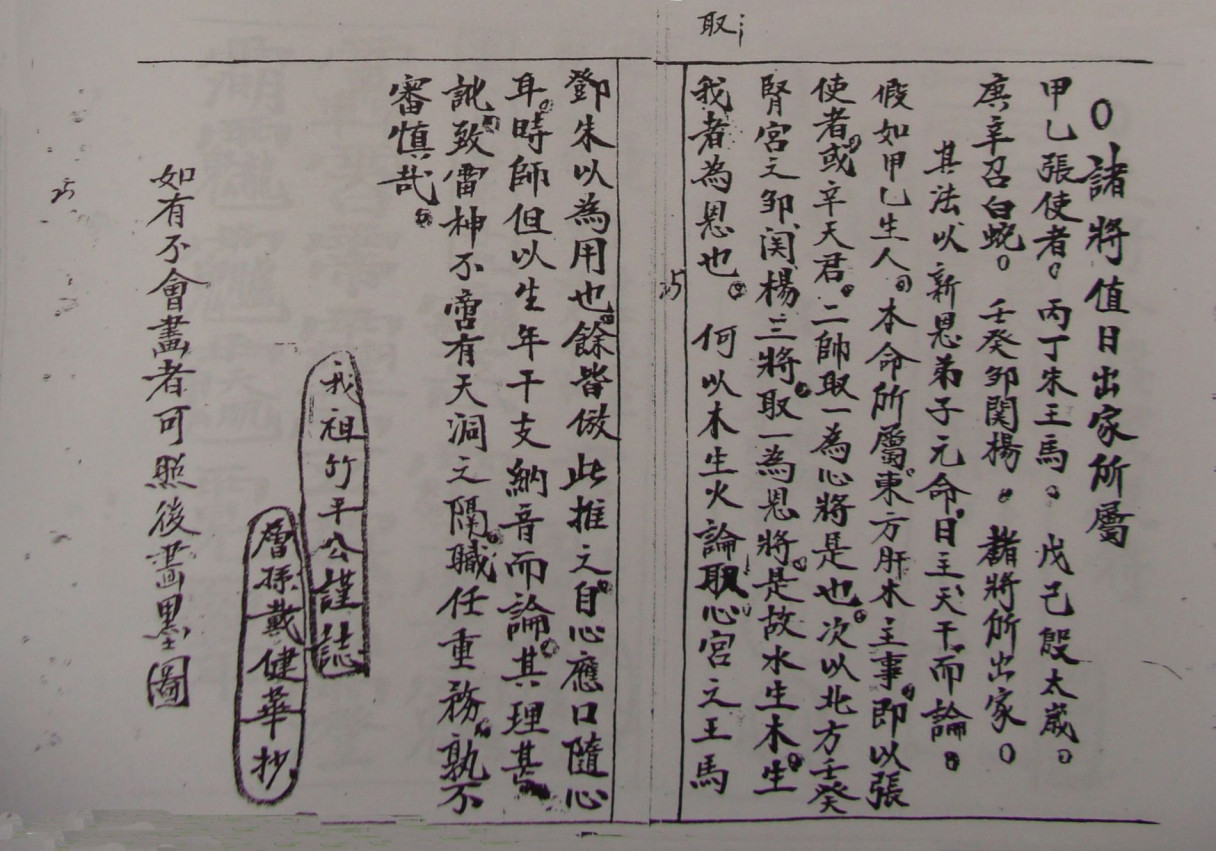 取
○諸將值日出家所屬
甲乙張使者。丙丁朱王馬。戊己殷太歲。
庚辛召白蛇。壬癸邹関楊。諸將所出家。
其法以新恩弟子元命日主天干而論。
假如甲乙生人。本命所屬東方肝木主事。即以張
使者。或辛天君。二帥取一為心將是也。次以北方壬癸
腎宮之邹関楊三將取一為恩將。是故水生木。生
我者為恩也。何以木生火論取心宮之王馬
25
鄧朱以為用也。餘皆倣此推之。自心應口隨心
耳。時師但以生年干支納音而論。其理甚
訛。致雷神不啻有天洞之隔。職任重務。孰不
審慎哉。
我祖竹平公謹誌
曾孫戴健華抄
如有不會畫者可照後畫思圖
25